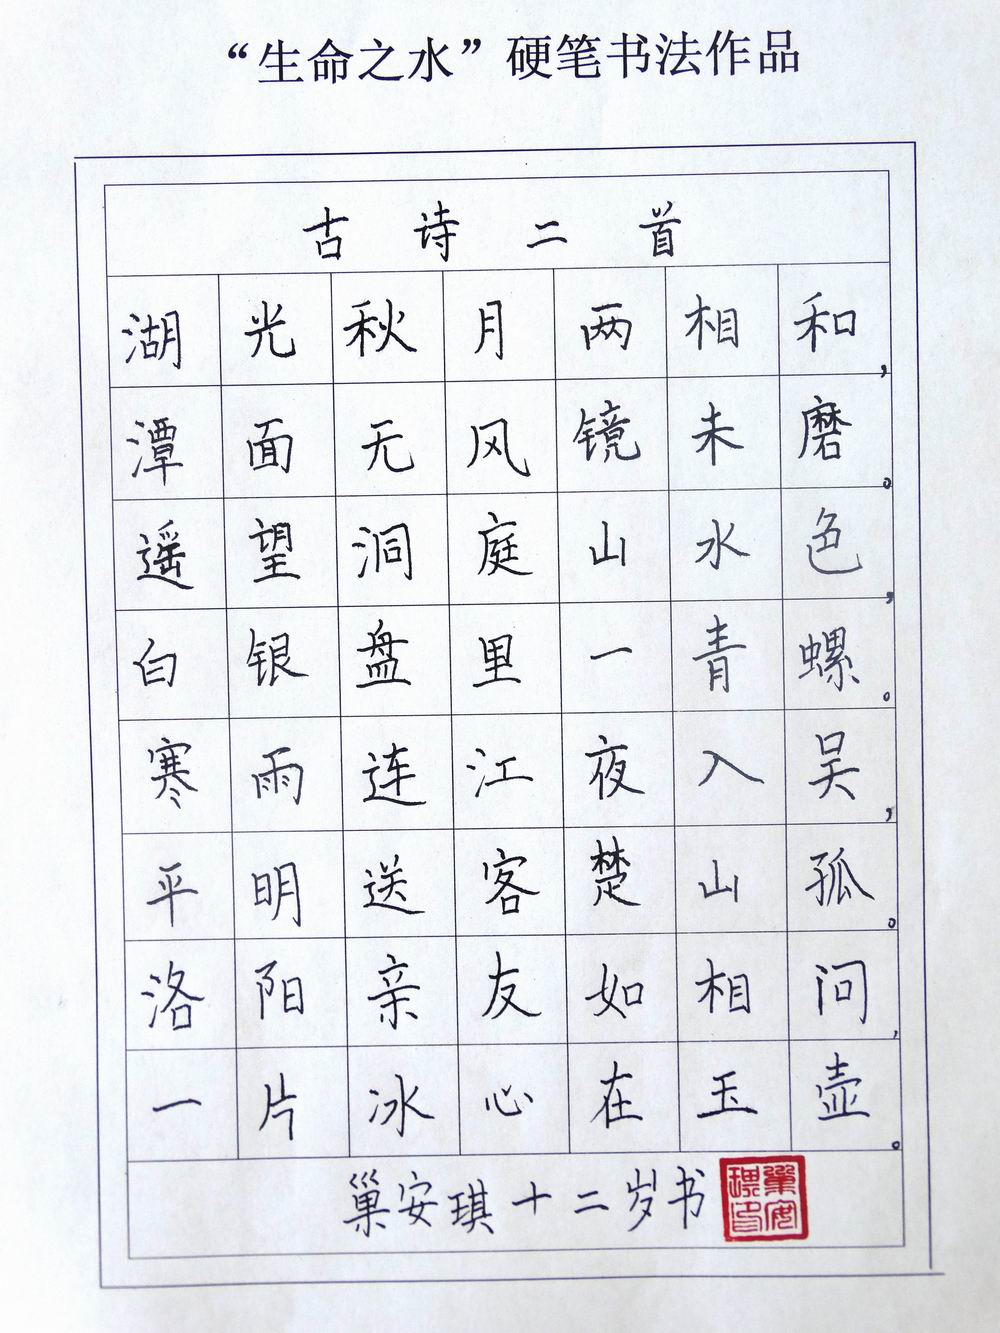 “生命之水”硬笔书法作品
古诗二首
湖光秋月两相和，
潭面无风镜未磨。
遥望洞庭山水色，
白银盘里一青螺。
寒雨连江夜入吴，
平明送客楚山孤。
洛阳亲友如相问，
一片冰心在玉壶。
巢安琪十二岁书
巢安琪印